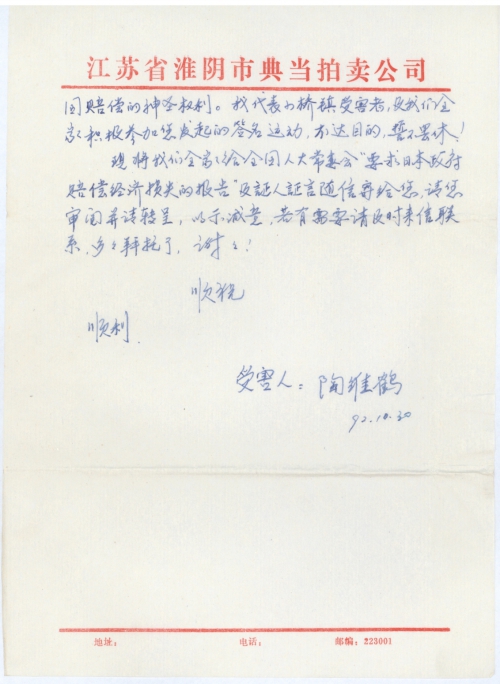 江苏省淮阴市典当拍卖公司
国赔偿的神圣权利。我代表小桥镇受害者,及我们全
家积极参加您发起的签名运动,不达目的,誓不罢休!
现将我们全家给全国人大常委会“要求日本政府
赔偿经济损失的报告”及証人証言随信寄给您,请您
审阅并请转呈,以示诚意,若有需要请及时来信联
系,多多拜托了,谢谢!
顺祝
顺利.
受害人:陶维鹤
92.10.30
地址: 电话: 邮编:223001